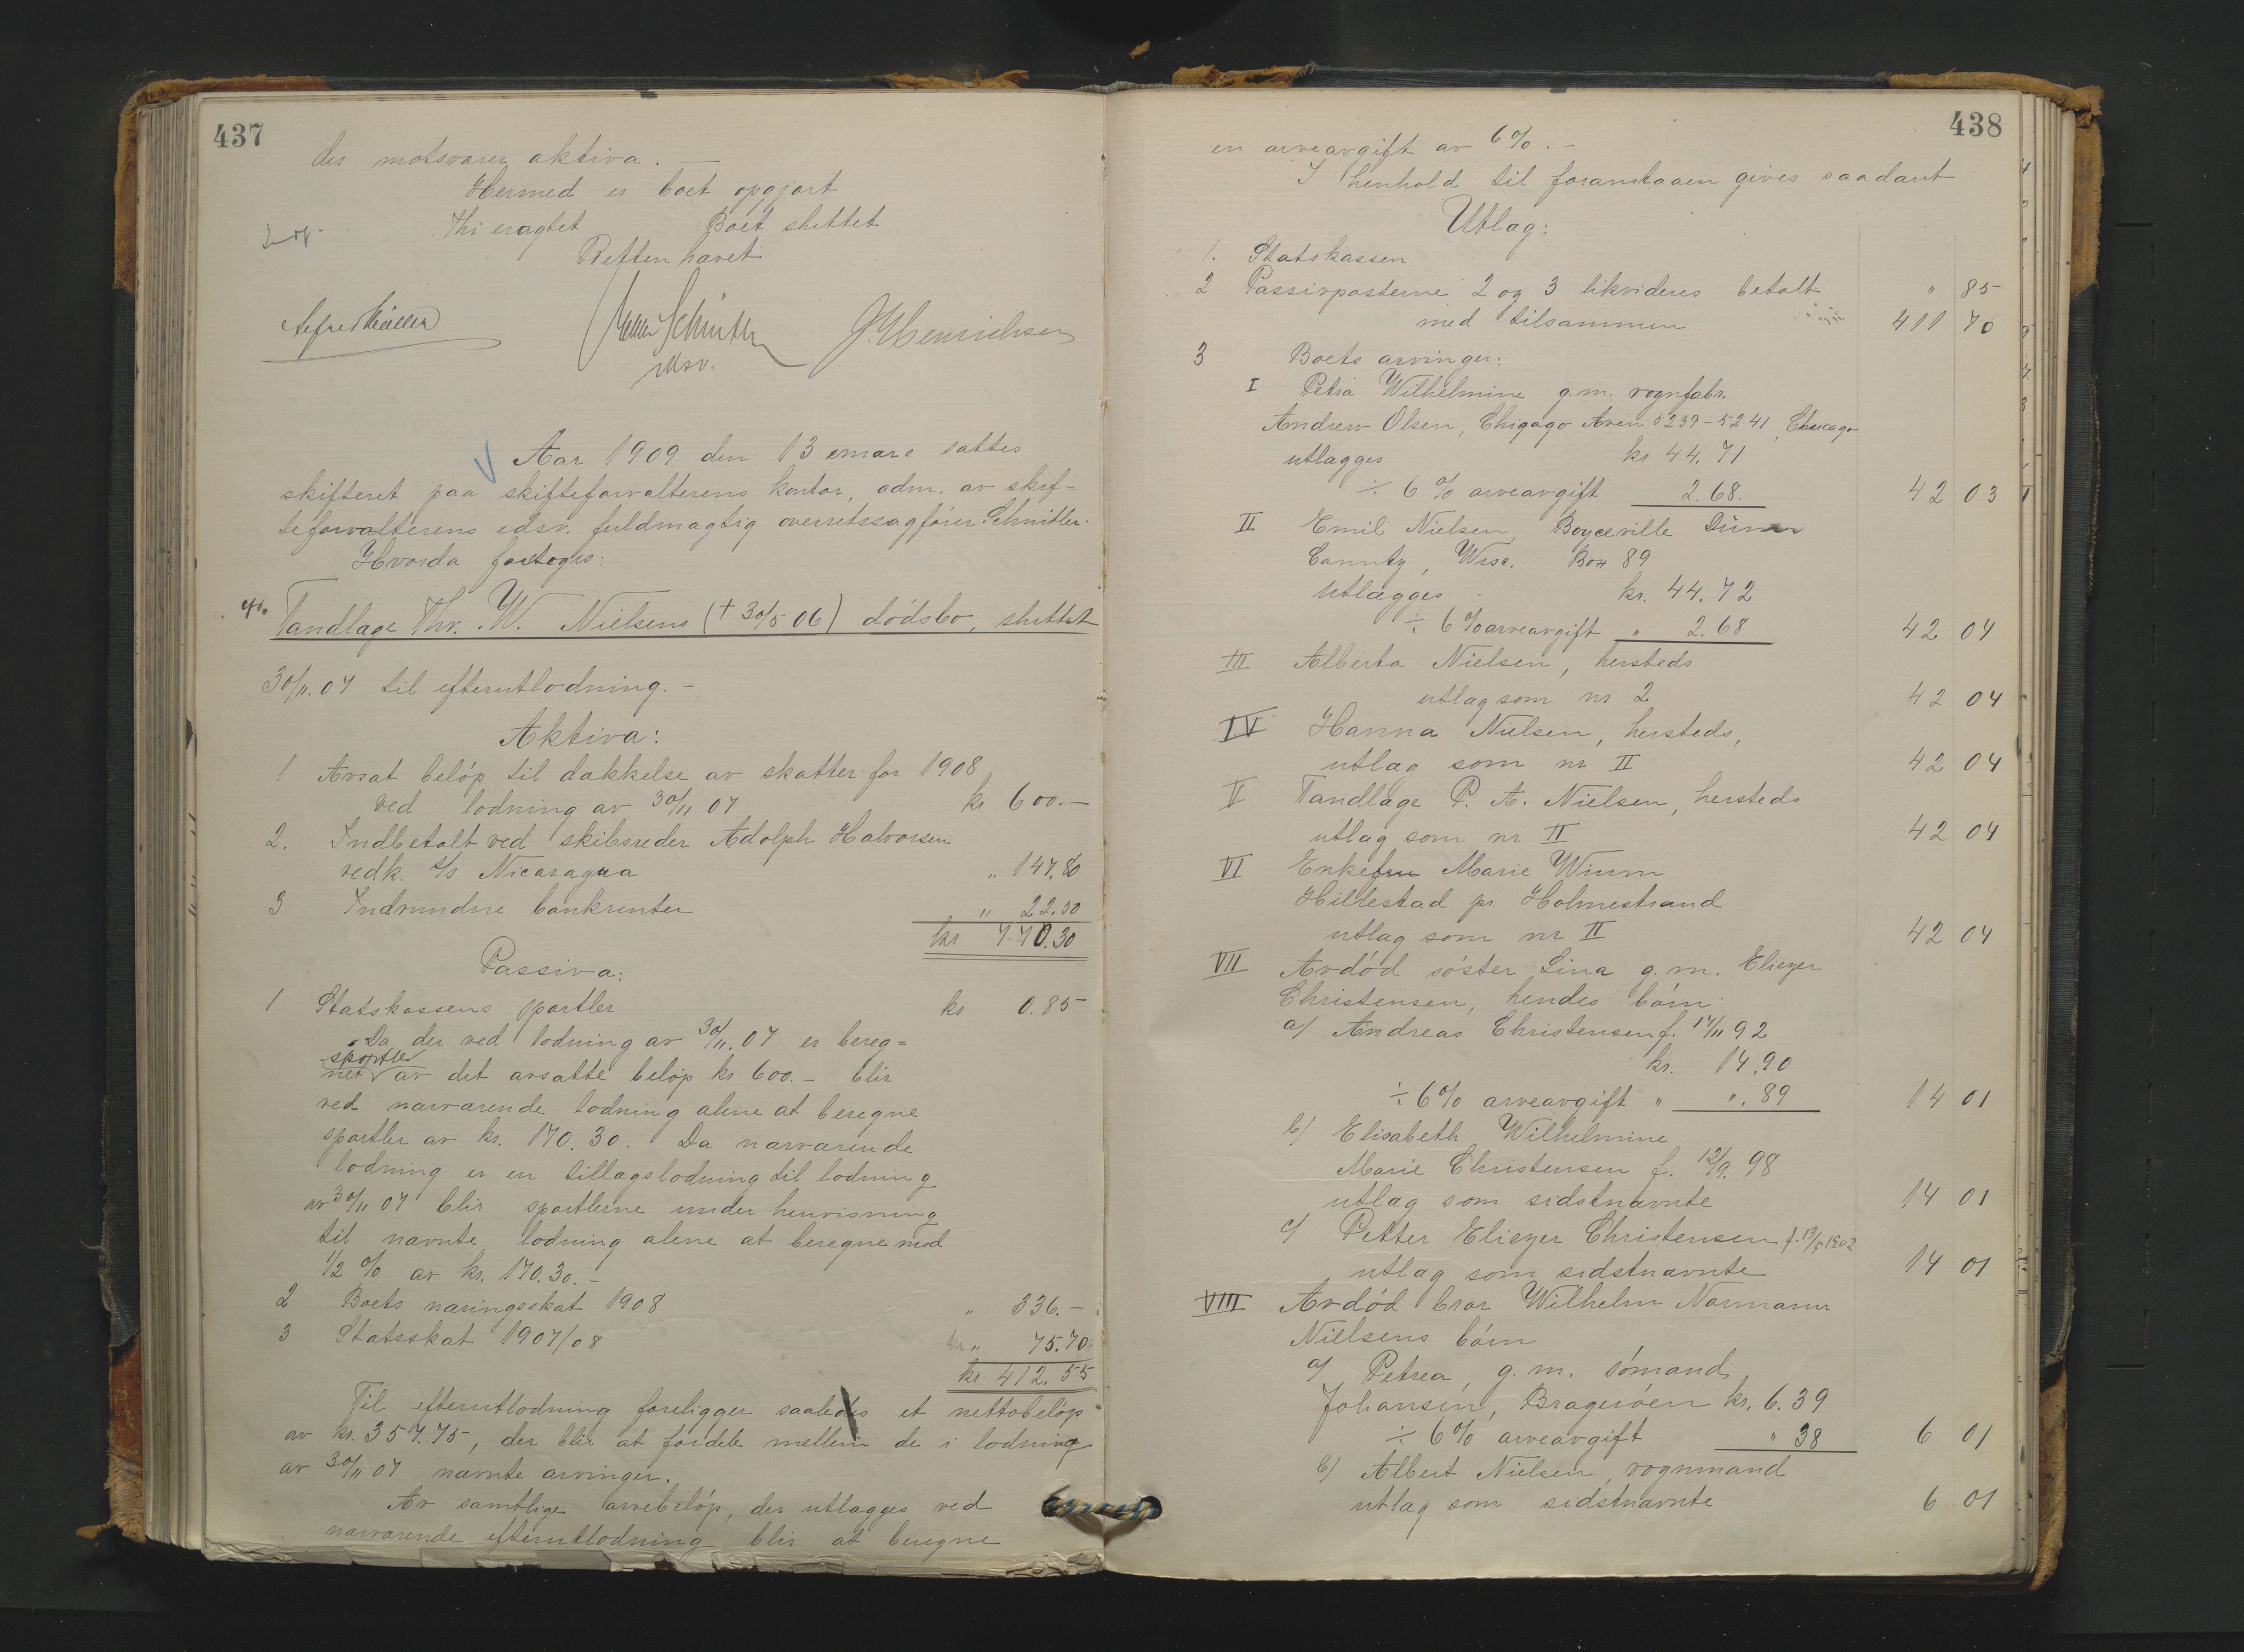 437
der motsvarer aktiva. —
Hermed er boet opgjort
Thi eragtet Boet sluttet
Retten hævet
J. Henrichsen
Aar 1909 den 13 mars sattes
skifteret paa skifteforvalterens kontor, adm. av skif=
teforvalterens edsv. fuldmægtig overretssagfører Schnitler.
Hvorda foretoges:
Tandlæge Thv. W. Nielsens († 30/5.06) dødsbo, sluttet
30/11.07 til efterutlodning. -
Aktiva:
1 Avsat beløp til dækkelse av skatter for 1908
ved lodning av 30/11 07 kr 600.—
2. Indbetalt ved skibsreder Adolph Halvorsen
vedk. s/s Nicaragua " 147.80
3 Indvundne bankrenter " 22.50
kr 770.30
Passiva:
1 Statskassens sportler kr 0.85
Da der ved lodning av 30/11.07 er bereg=
net sportler av det avsatte beløp kr 600.- blir
ved nærværende lodning alene at beregne
sportler av kr. 170.30. Da nærværende
lodning er en tillægslodning til lodning
av 30/11 07 blir sportlerne under henvisning
til nævnte lodning alene at beregne med
1/2 % av kr. 170.30. -
2 Boets næringsskat 1908 " 336.-
3 Statsskat 1907/08 " 75.70
kr 412.55
Til efterutlodning foreligger saaledes et nettobeløp
av kr. 357.75, der blir at fordele mellem de i lodning
av 30/11 07 nævnte arvinger.
Av samtlige arvebeløp, der utlægges ved
nærværende efterutlodning blir at beregne
438
en arveavgift av 6%. -
I henhold til foranstaaen gives saadant
Utlæg:
1. Statskassen " 85
2 Passivposterne 2 og 3 likvideres betalt
med tilsammen 411 70
3 Boets arvinger:
I Petra Wilhelmine g.m. vognfabr.
Andrew Olsen, Chigago Aven 5239-5241, Chicago
utlægges kr 44.71
÷ 6% arveavgift 2.68. 42 03
II Emil Nielsen, Boyceville Dunn
County, Wisc. Box 89
utlægges kr. 44.72
÷ 6% arveavgift " 2.68 42 04
III Alberta Nielsen, hersteds
utlæg som nr 2 42 04
IV Hanna Nielsen, hersteds,
utlæg som nr II 42 04
V Tandlæge P. A. Nielsen, hersteds
utlæg som nr II 42 04
VI Enkefru Marie Wium
Hillestad pr. Holmestrand
utlæg som nr II 42 04
VII Avdød søster Lina g.m. Eliezer
Christensen, hendes børn:
a/ Andreas Christensen f. 17/11 92
kr. 14.90
÷ 6% arveavgift " ". 89 14 01
b/ Elisabeth Wilhelmine
Marie Christensen f. 12/9. 98
utlæg som sidstnævnte 14 01
c/ Petter Eliezer Christensen f. 13/5 1902
utlæg som sidstnævnte 14 01
VIII Avdød bror Wilhelm Normann
Nielsens børn
a/ Petrea, g.m. sømand
Johansen, Bragerøen kr. 6.39
÷ 6% arveavgift " 38 6 01
b/ Albert Nielsen, vognmand
utlæg som sidstnævnte 6 01